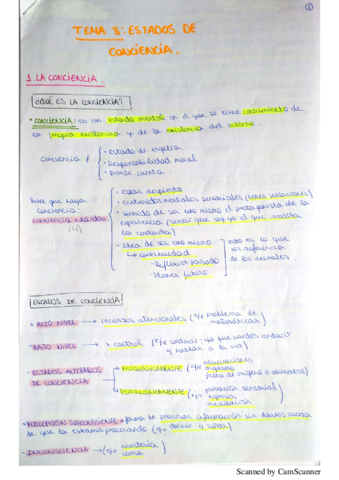 ①
TEMA 3: ESTADOS DE
CONCIENCIA.
1. LA CONCIENCIA.
¿QUÉ ES LA CONCIENCIA?
• CONCIENCIA: es un estado mental en el que se tiene conocimiento de
la propia existencia y de la existencia del entorno.
conciencia
• Estado de vigilia
• Responsabilidad moral
• Darse cuenta.
Para que haya
conciencia
• Estar despierto
• Contenidos mentales sensoriales (tener sensaciones)
• Sentido de ser uno mismo el protagonista de la
experiencia (sentir que soy yo el que realiza
la conducta)
• Idea de ser uno mismo
↳ continuidad
- Reflexión pasado
- Planes futuro
esto es lo que
nos diferencia
de los animales
ESTADOS DE CONCIENCIA
• ALTO NIVEL → recursos atencionales (problema de
matemáticas)
• BAJO NIVEL → control (conducir: ya que puedes conducir
y hablar a la vez)
• ESTADOS ALTERADOS
DE CONCIENCIA
→ FISIOLÓGICAMENTE (alucinaciones
falta de oxígeno o alimentos)
→ PSICOLÓGICAMENTE (privación sensorial
hipnosis
meditación)
• PERCEPCIÓN SUBCONSCIENTE → forma de procesar información sin darnos cuenta
de que la estamos procesando (dormir y soñar)
• INCONSCIENCIA → (anestesia
coma)
Scanned by CamScanner